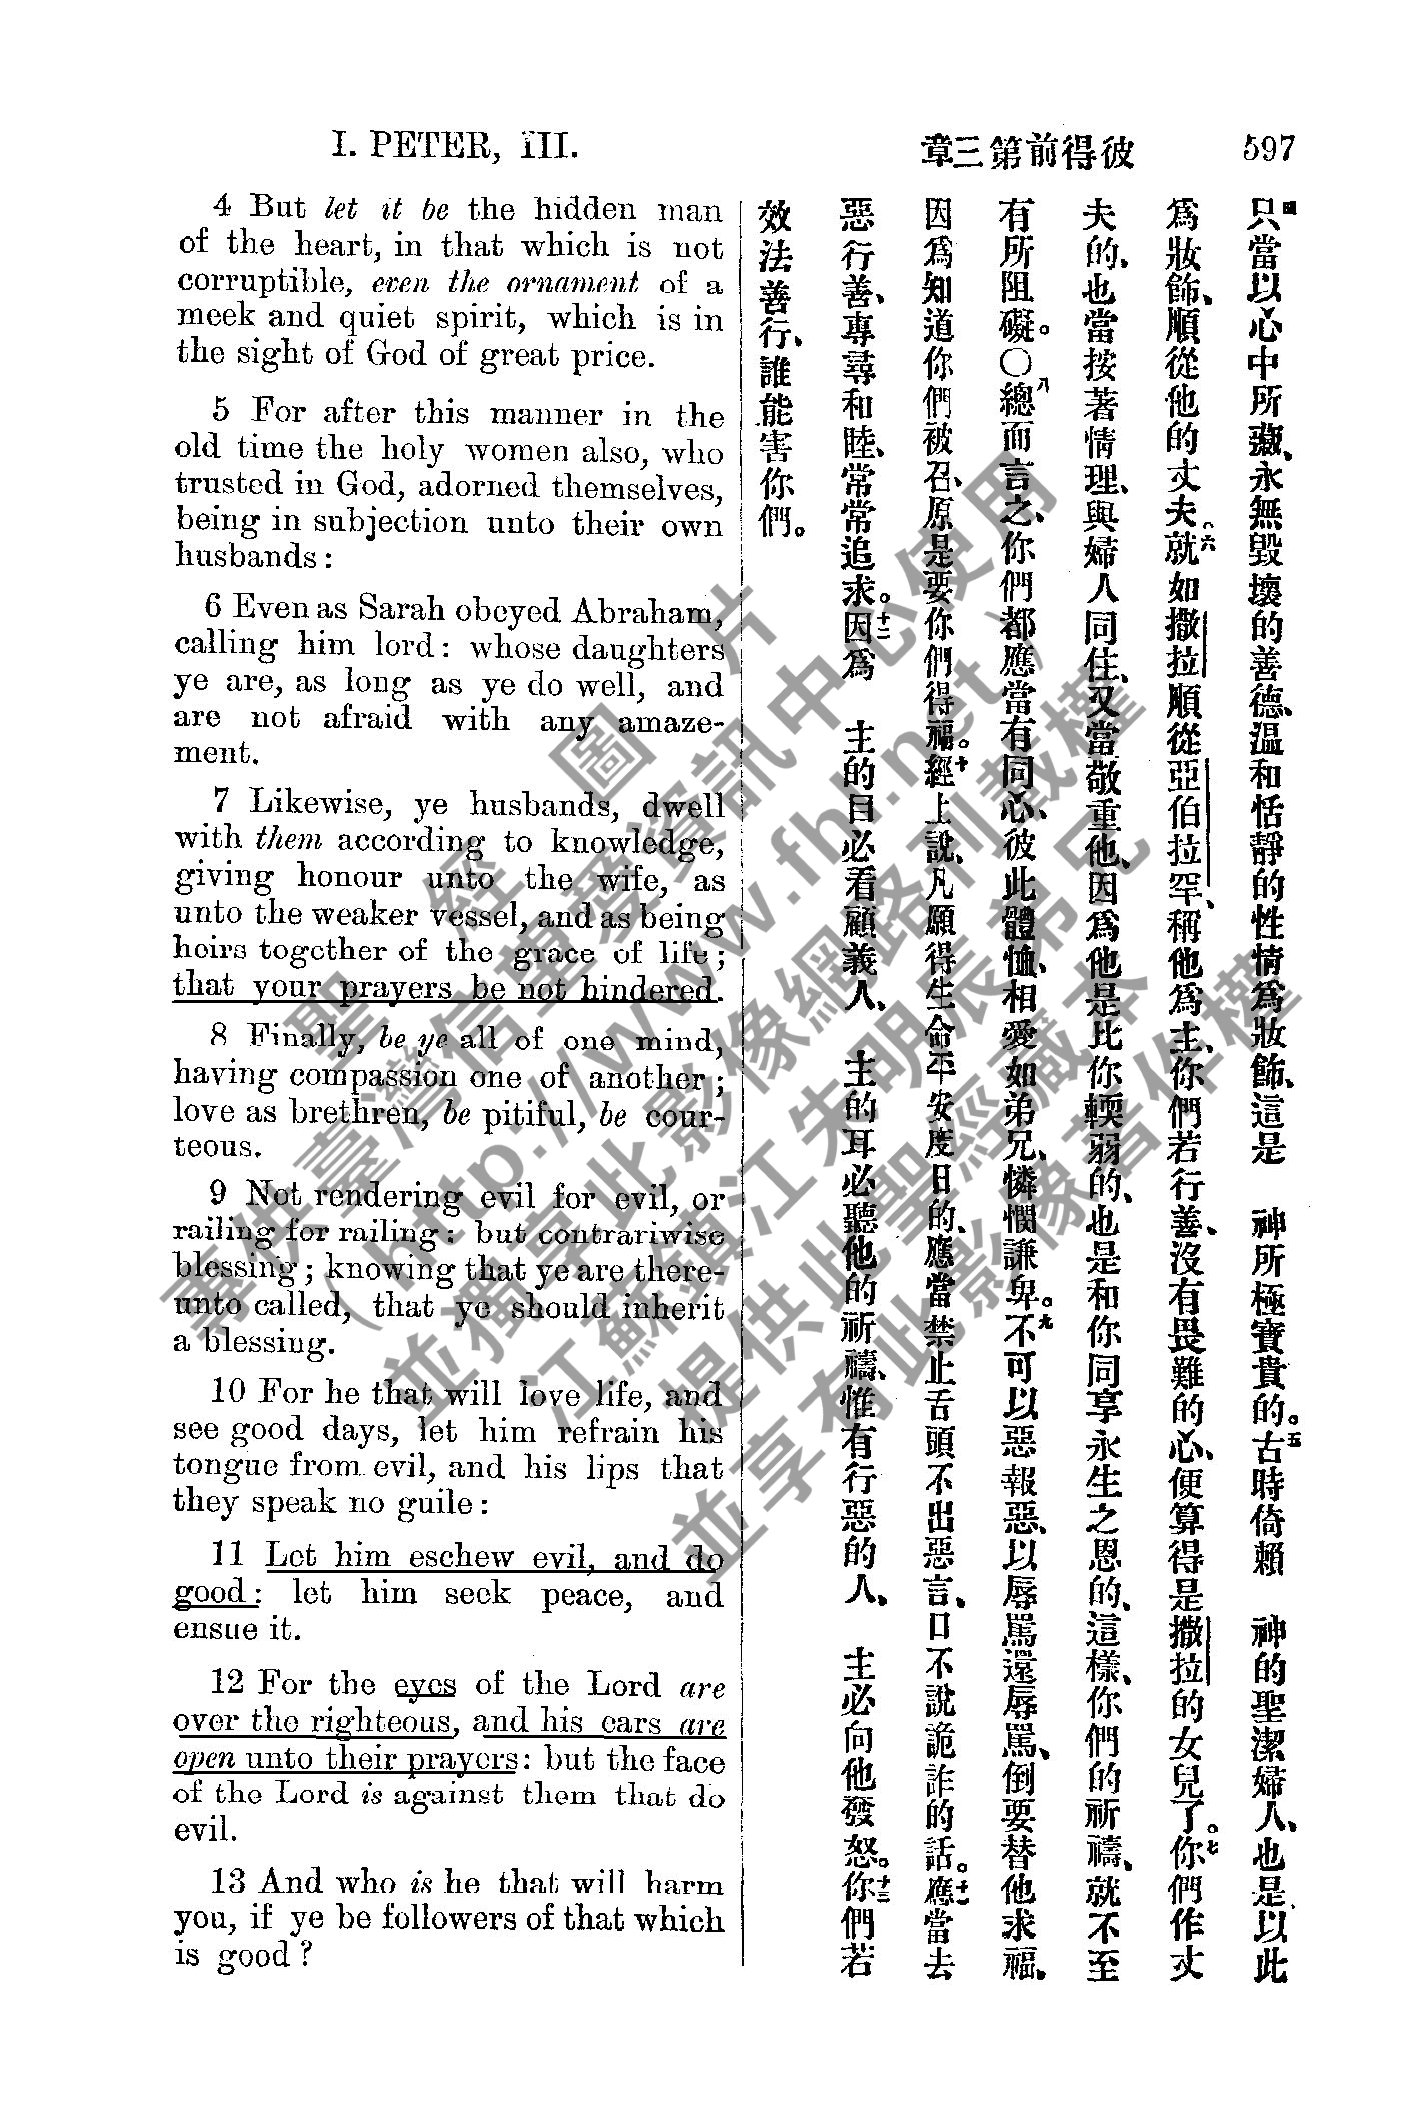 I. PETER, III.
彼得前第三章
597
4 But let it be the hidden man
of the heart, in that which is not
corruptible, even the ornament of a
meek and quiet spirit, which is in
the sight of God of great price.
5 For after this manner in the
old time the holy women also, who
trusted in God, adorned themselves,
being in subjection unto their own
husbands:
6 Even as Sarah obeyed Abraham,
calling him lord: whose daughters
ye are, as long as ye do well, and
are not afraid with any amaze-
ment.
7 Likewise, ye husbands, dwell
with them according to knowledge,
giving honour unto the wife, as
unto the weaker vessel, and as being
heirs together of the grace of life;
that your prayers be not hindered.
8 Finally, be ye all of one mind,
having compassion one of another;
love as brethren, be pitiful, be cour-
teous.
9 Not rendering evil for evil, or
railing for railing: but contrariwise
blessing; knowing that ye are there-
unto called, that ye should inherit
a blessing.
10 For he that will love life, and
see good days, let him refrain his
tongue from evil, and his lips that
they speak no guile:
11 Let him eschew evil, and do
good: let him seek peace, and
ensue it.
12 For the eyes of the Lord are
over the righteous, and his ears are
open unto their prayers: but the face
of the Lord is against them that do
evil.
13 And who is he that will harm
you, if ye be followers of that which
is good?
四只當以心中所藏、永無毀壞的善德、温和恬靜的性情爲妝飾、這是　神所極寶貴的。五古時倚賴　神的聖潔婦人、也是以此
爲妝飾、順從他的丈夫。六就如撒拉順從亞伯拉罕、稱他爲主、你們若行善、沒有畏難的心、便算得是撒拉的女兒了。七你們作丈
夫的、也當按著情理、與婦人同住、又當敬重他、因爲他是比你輭弱的、也是和你同享永生之恩的、這樣、你們的祈禱、就不至
有所阻礙。〇八總而言之、你們都應當有同心、彼此體恤、相愛如弟兄、憐憫謙卑。九不可以惡報惡、以辱罵還辱罵、倒要替他求福、
因爲知道你們被召、原是要你們得福。十經上說、凡願得生命平安度日的、應當禁止舌頭不出惡言、口不說詭詐的話。十一應當去
惡行善、專尋和睦、常常追求。十二因爲　主的目必看顧義人、　主的耳必聽他的祈禱、惟有行惡的人、　主必向他發怒。十三你們若
效法善行、誰能害你們。
聖經圖片
專供臺灣信望愛資訊中心使用
（http://www.fhl.net）
並獨享此影像網路刊載權
江蘇鎮江朱明辰弟兄
提供此聖經藏本
並享有此影像著作權